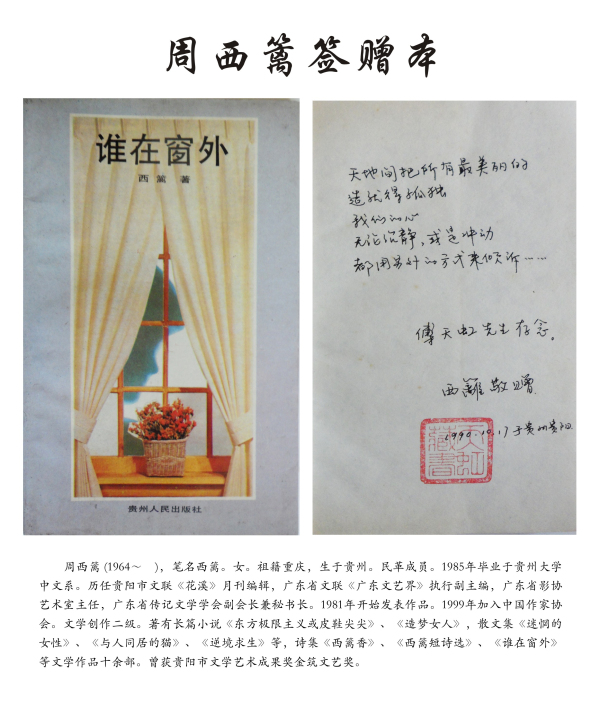 周西篱签赠本
谁在窗外
西篱 著
贵州人民出版社
天地间把所有最美丽的
造就得孤独
我们的心
无论沉静，或是冲动
都用另外的方式来倾诉……
傅天虹先生存念。
西篱敬赠
1990.10.17于贵州贵阳
天虹
藏書
周西篱 (1964～　)，笔名西篱。女。祖籍重庆，生于贵州。民革成员。1985年毕业于贵州大学
中文系。历任贵阳市文联《花溪》月刊编辑，广东省文联《广东文艺界》执行副主编，广东省影协
艺术室主任，广东省传记文学学会副会长兼秘书长。1981年开始发表作品。1999年加入中国作家协
会。文学创作二级。著有长篇小说《东方极限主义或皮鞋尖尖》、《造梦女人》，散文集《迷惘的
女性》、《与人同居的猫》、《逆境求生》等，诗集《西篱香》、《西篱短诗选》、《谁在窗外》
等文学作品十余部。曾获贵阳市文学艺术成果奖金筑文艺奖。